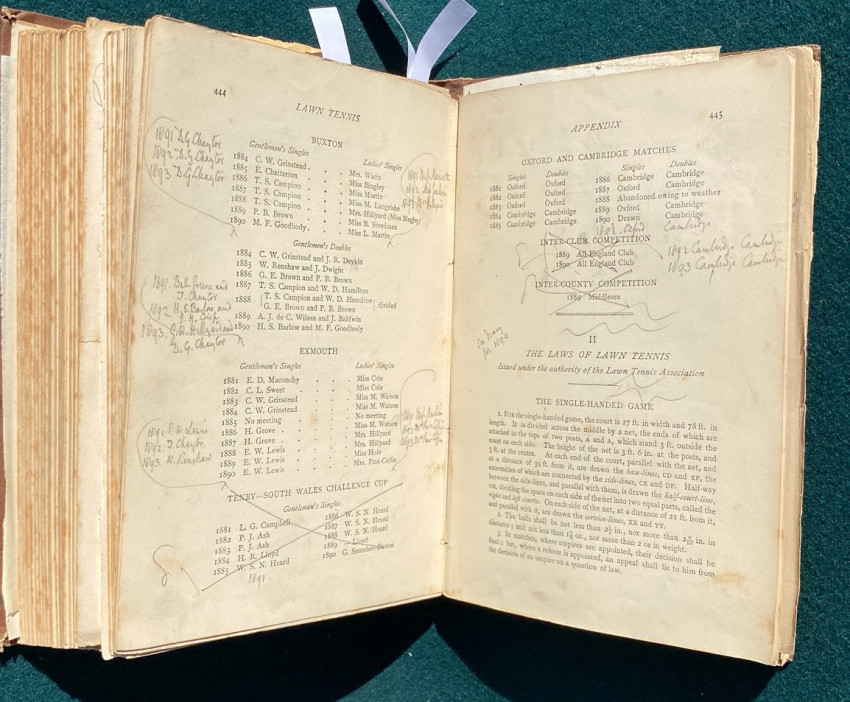 444
LAWN TENNIS
BUXTON
Gentlemen's Singles Ladies' Singles
1884 C. W. Grinstead . . . Mrs. Watts
1885 E. Chatterton . . . Miss Bingley
1886 T. S. Campion . . . Miss Martin
1887 T. S. Campion . . . Miss M. Langrishe
1888 T. S. Campion . . . Mrs. Hillyard (Miss Bingley)
1889 P. B. Brown . . . Miss B. Steedman
1890 M. F. Goodbody . . . Miss L. Martin
1891 D.G. Chaytor
1892 D.G. Chaytor
1893 D.G. Chaytor
1891
1892
1893
Gentlemen's Doubles
1884 C. W. Grinstead and J. R. Deykin
1885 W. Renshaw and J. Dwight
1886 G. E. Brown and P. B. Brown
1887 T. S. Campion and W. D. Hamilton
1888 { T. S. Campion and W. D. Hamilton } divided
G. E. Brown and P. B. Brown
1889 A. J. de C. Wilson and J. Baldwin
1890 H. S. Barlow and M. F. Goodbody
1891. Ball-Greene and
T. Chaytor
1892 H.S. Barlow and
1893. G.W. Hillyard and
D. G. Chaytor
EXMOUTH
Gentlemen's Singles Ladies' Singles
1881 E. D. Maconchy . . . Miss Cole
1882 C. L. Sweet . . . Miss Cole
1883 C. W. Grinstead . . . Miss M. Watson
1884 C. W. Grinstead . . . Miss M. Watson
1885 No meeting . . . No meeting
1886 H. Grove . . . Miss M. Watson
1887 H. Grove . . . Mrs. Hillyard
1888 E. W. Lewis . . . Mrs. Hillyard
1889 E. W. Lewis . . . Miss Hole
1890 E. W. Lewis . . . Mrs. Pine-Coffin
1891. E. W. Lewis
1892. T. Chaytor
1893 W. Renshaw
TENBY—SOUTH WALES CHALLENGE CUP
Gentlemen's Singles
1881 L. G. Campbell 1886 W. S. N. Heard
1882 P. J. Ash 1887 W. S. N. Heard
1883 P. J. Ash 1888 W. S. N. Heard
1884 H. R. Lloyd 1889 — Lloyd
1885 W. S. N. Heard 1890 G. Saunders Davies
1891.
APPENDIX 445
OXFORD AND CAMBRIDGE MATCHES
Singles Doubles Singles Doubles
1881 Oxford Oxford 1886 Cambridge Cambridge
1882 Oxford Oxford 1887 Oxford Cambridge
1883 Oxford Oxford 1888 Abandoned owing to weather
1884 Cambridge Cambridge 1889 Oxford Oxford
1885 Cambridge Cambridge 1890 Drawn Cambridge
1891. Oxford Cambridge
1892 Cambridge Cambridge
1893 Cambridge Cambridge
INTER-CLUB COMPETITION
1889 All England Club
1890 All England Club
INTER-COUNTY COMPETITION
1889 Middlesex
for 1894
II
THE LAWS OF LAWN TENNIS
Issued under the authority of the Lawn Tennis Association
THE SINGLE-HANDED GAME
1. FOR the single-handed game, the court is 27 ft. in width and 78 ft. in
length. It is divided across the middle by a net, the ends of which are
attached to the tops of two posts, A and A, which stand 3 ft. outside the
court on each side. The height of the net is 3 ft. 6 in. at the posts, and
3 ft. at the centre. At each end of the court, parallel with the net, and
at a distance of 39 ft. from it, are drawn the base-lines, CD and EF, the
extremities of which are connected by the side-lines, CE and DF. Half-way
between the side-lines, and parallel with them, is drawn the half-court-line,
GH, dividing the space on each side of the net into two equal parts, called the
right and left courts. On each side of the net, at a distance of 21 ft. from it,
and parallel with it, are drawn the service-lines, XX and YY.
2. The balls shall be not less than 2½ in., nor more than 2 9/16 in. in
diameter; and not less than 1⅞ oz., nor more than 2 oz in weight.
3. In matches, where umpires are appointed, their decision shall be
final; but, where a referee is appointed, an appeal shall lie to him from
the decision of an umpire on a question of law.